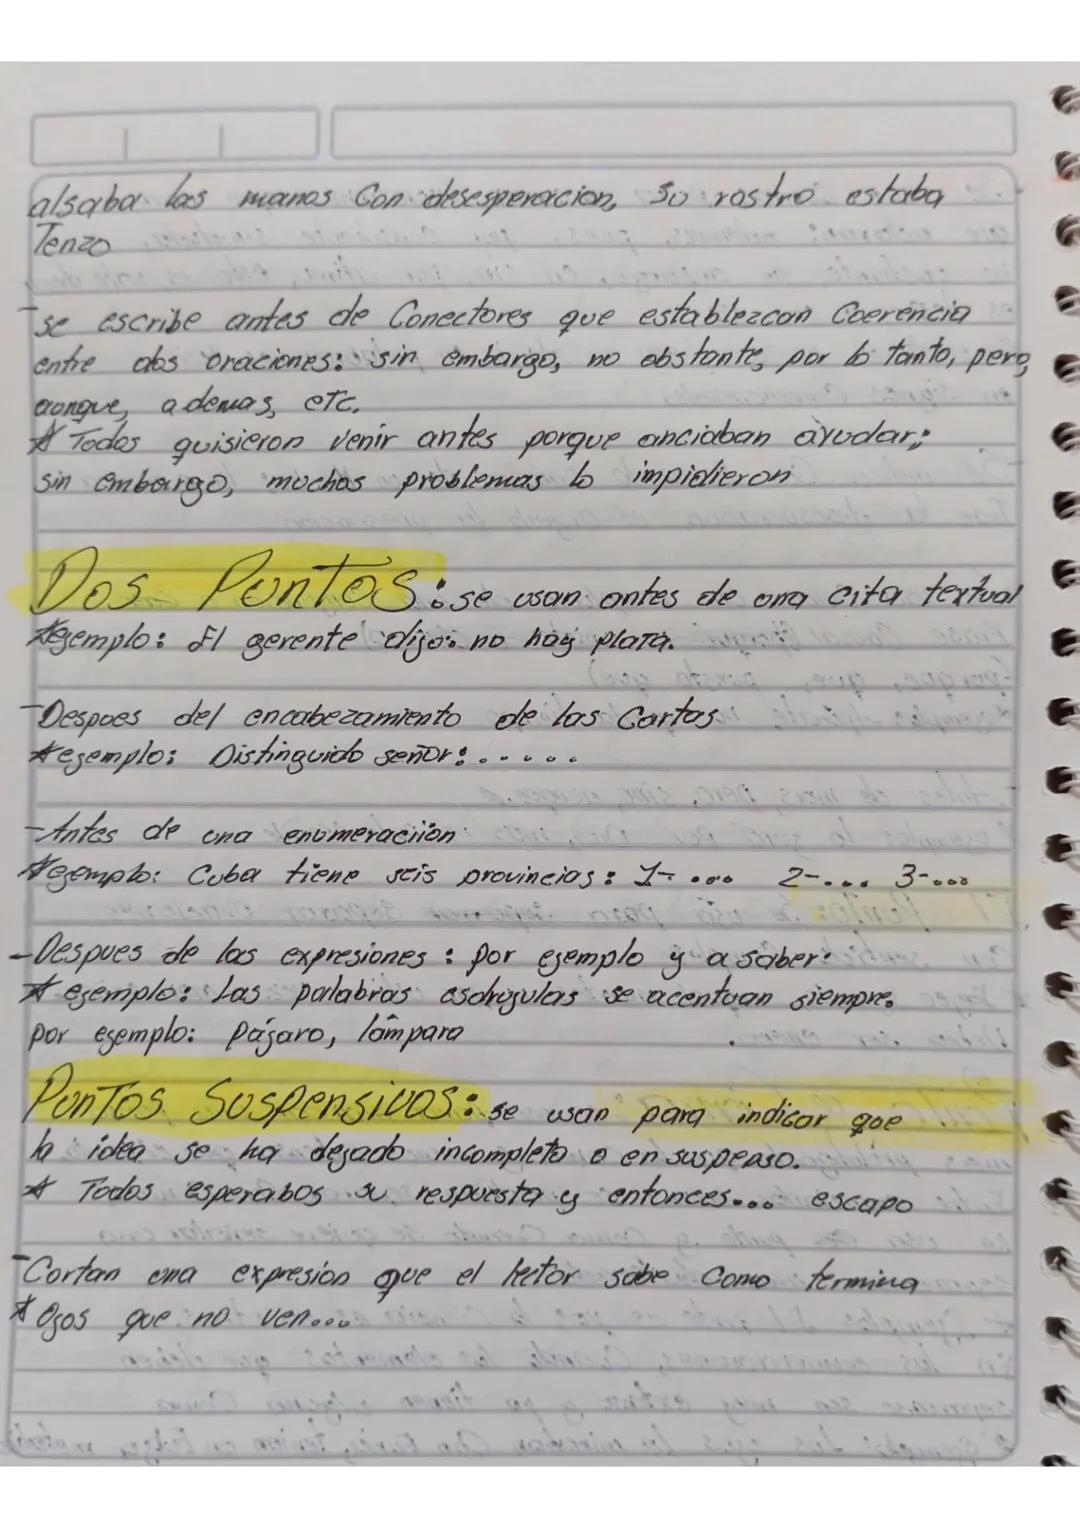 alsaba las manos Con desesperacion, su rostro estaba
Tenzo
- se escribe antes de Conectores que establezcan Coerencia
entre dos oraciones: sin embargo, no obstante, por lo tanto, pero,
aunque, ademas, etc.
* Todos quisieron venir antes porque anciaban ayudar;
sin embargo, muchos problemas lo impidieron
Dos Puntos: se usan antes de una cita textual
* ejemplo: El gerente dijo: no hay plata.
- Despues del encabezamiento de las Cartas
* ejemplo: Distinguido señor: .....
- Antes de una enumeraciión
* ejemplo: Cuba tiene seis provincias: 1-... 2-... 3-...
- Despues de las expresiones: por ejemplo y a saber:
* ejemplo: Las palabras esdrujulas se acentuan siempre.
por ejemplo: Pájaro, lámpara
Puntos Suspensivos: se usan para indicar que
la idea se ha dejado incompleta o en suspenso.
* Todos esperabos su respuesta y entonces... escapo
- Cortan una expresión que el lector sabe Como termina
* Ojos que no ven...